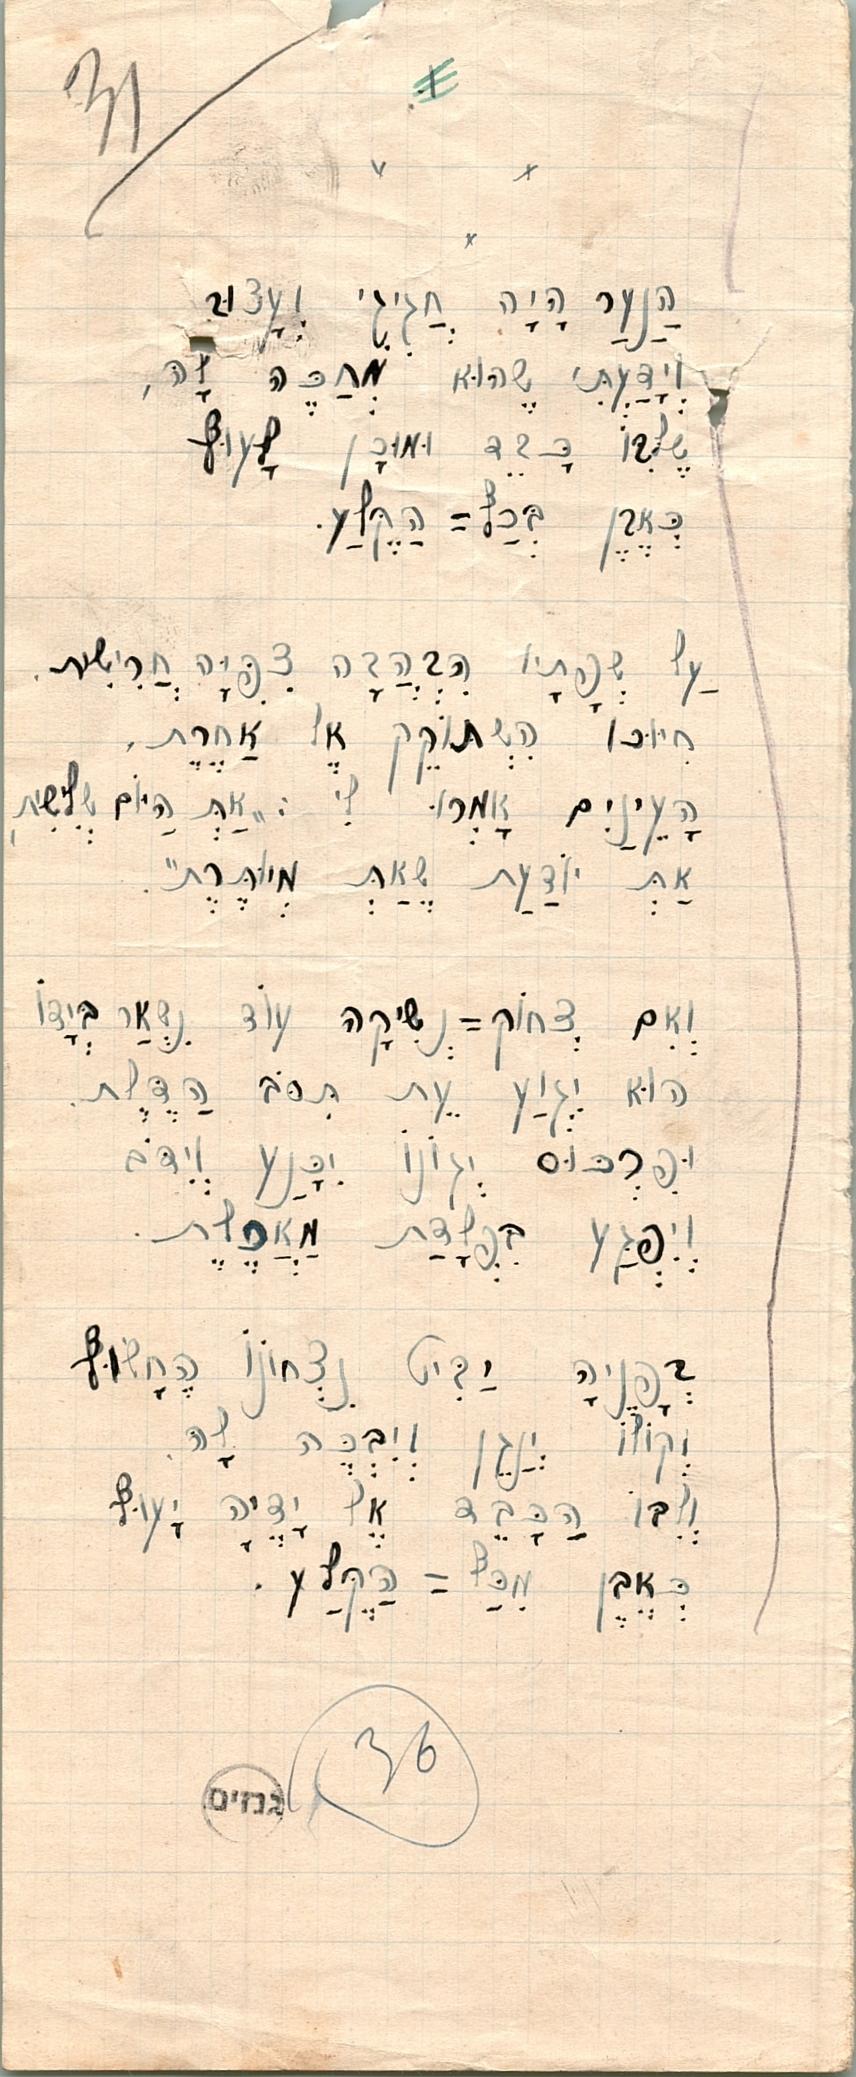 31
הַנַּעַר הָיָה חֲגִיגִי וְעָצוּב
וְיָדַעְתִּי שֶׁהוּא מְחַכֶּה לָהּ,
שֶׁלִּבּוֹ כָּבֵד וּמוּכָן לָעוּף
כְּאֶבֶן בְּכַף=הַקֶּלַע.
עַל שְׂפָתָיו הִבְהֲבָה צִפִּיָּה חֲרִישִׁית.
חִיּוּכוֹ הִשְׁתּוֹקֵק אֶל אַחֶרֶת,
הָעֵינַיִם אָמְרוּ לִי: "אַתְּ הַיּוֹם שְׁלִישִׁית,
אַתְּ יוֹדַעַת שֶׁאַתְּ מְיוּתֶּרֶת".
וְאִם צְחוֹק=נְשִׁיקָה עוֹד נִשְׁאַר בְּיָדוֹ
הוּא יִגְוַע עֵת תִּסֹּב הַדֶּלֶת.
וּפִרְכּוּס יְגוֹנוֹ יִכָּנַע וְיִדֹּב
וְיִפְגַּע בִּפְלָדַת מַאֲפֶלֶת.
בְּפָנֶיהָ יַבִּיט נִצְחוֹנוֹ הֶחָשׂוּף
וְקוֹלוֹ יְנַגֵּן וְיִבְכֶּה לָהּ.
וְלִבּוֹ הַכָּבֵד אֶל יָדֶיהָ יָעוּף
כְּאֶבֶן מִכַּף=הַקֶּלַע.
36
גנזים